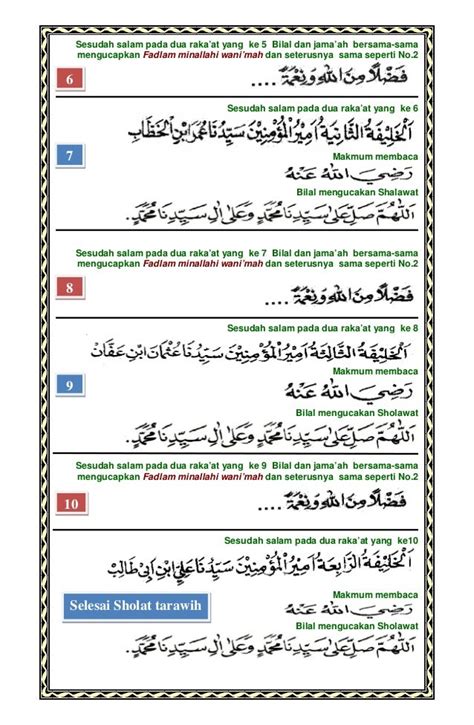 Sesudah salam pada dua raka'at yang ke 5 Bilal dan jama'ah bersama-sama
mengucapkan Fadlam minallahi wani'mah dan seterusnya sama seperti No.2
6
فَضْلًا مِنَ اللهِ وَنِعْمَةً ....
Sesudah salam pada dua raka'at yang ke 6
اَلْخَلِيْفَةُ الثَّانِيَةُ اَمِيْرُ الْمُؤْمِنِيْنَ سَيِّدُنَا عُمَرُ ابْنُ الْخَطَّابِ
7
Makmum membaca
رَضِيَ اللهُ عَنْهُ
Bilal mengucakan Shalawat
اَللّٰهُمَّ صَلِّ عَلٰى سَيِّدِنَا مُحَمَّدٍ وَعَلٰى اٰلِ سَيِّدِنَا مُحَمَّدٍ.
Sesudah salam pada dua raka'at yang ke 7 Bilal dan jama'ah bersama-sama
mengucapkan Fadlam minallahi wani'mah dan seterusnya sama seperti No.2
8
فَضْلًا مِنَ اللهِ وَنِعْمَةً ....
Sesudah salam pada dua raka'at yang ke 8
اَلْخَلِيْفَةُ الثَّالِثَةُ اَمِيْرُ الْمُؤْمِنِيْنَ سَيِّدُنَا عُثْمَانُ ابْنُ عَفَّانَ
Makmum membaca
9
رَضِيَ اللهُ عَنْهُ
Bilal mengucakan Sholawat
اَللّٰهُمَّ صَلِّ عَلٰى سَيِّدِنَا مُحَمَّدٍ وَعَلٰى اٰلِ سَيِّدِنَا مُحَمَّدٍ.
Sesudah salam pada dua raka'at yang ke 9 Bilal dan jama'ah bersama-sama
mengucapkan Fadlam minallahi wani'mah dan seterusnya sama seperti No.2
10
فَضْلًا مِنَ اللهِ وَنِعْمَةً ....
Sesudah salam pada dua raka'at yang ke10
اَلْخَلِيْفَةُ الرَّابِعَةُ اَمِيْرُ الْمُؤْمِنِيْنَ سَيِّدُنَا عَلِيُّ ابْنُ اَبِيْ طَالِبْ
Makmum membaca
Selesai Sholat tarawih
رَضِيَ اللهُ عَنْهُ
Bilal mengucakan Sholawat
اَللّٰهُمَّ صَلِّ عَلٰى سَيِّدِنَا مُحَمَّدٍ وَعَلٰى اٰلِ سَيِّدِنَا مُحَمَّدٍ.